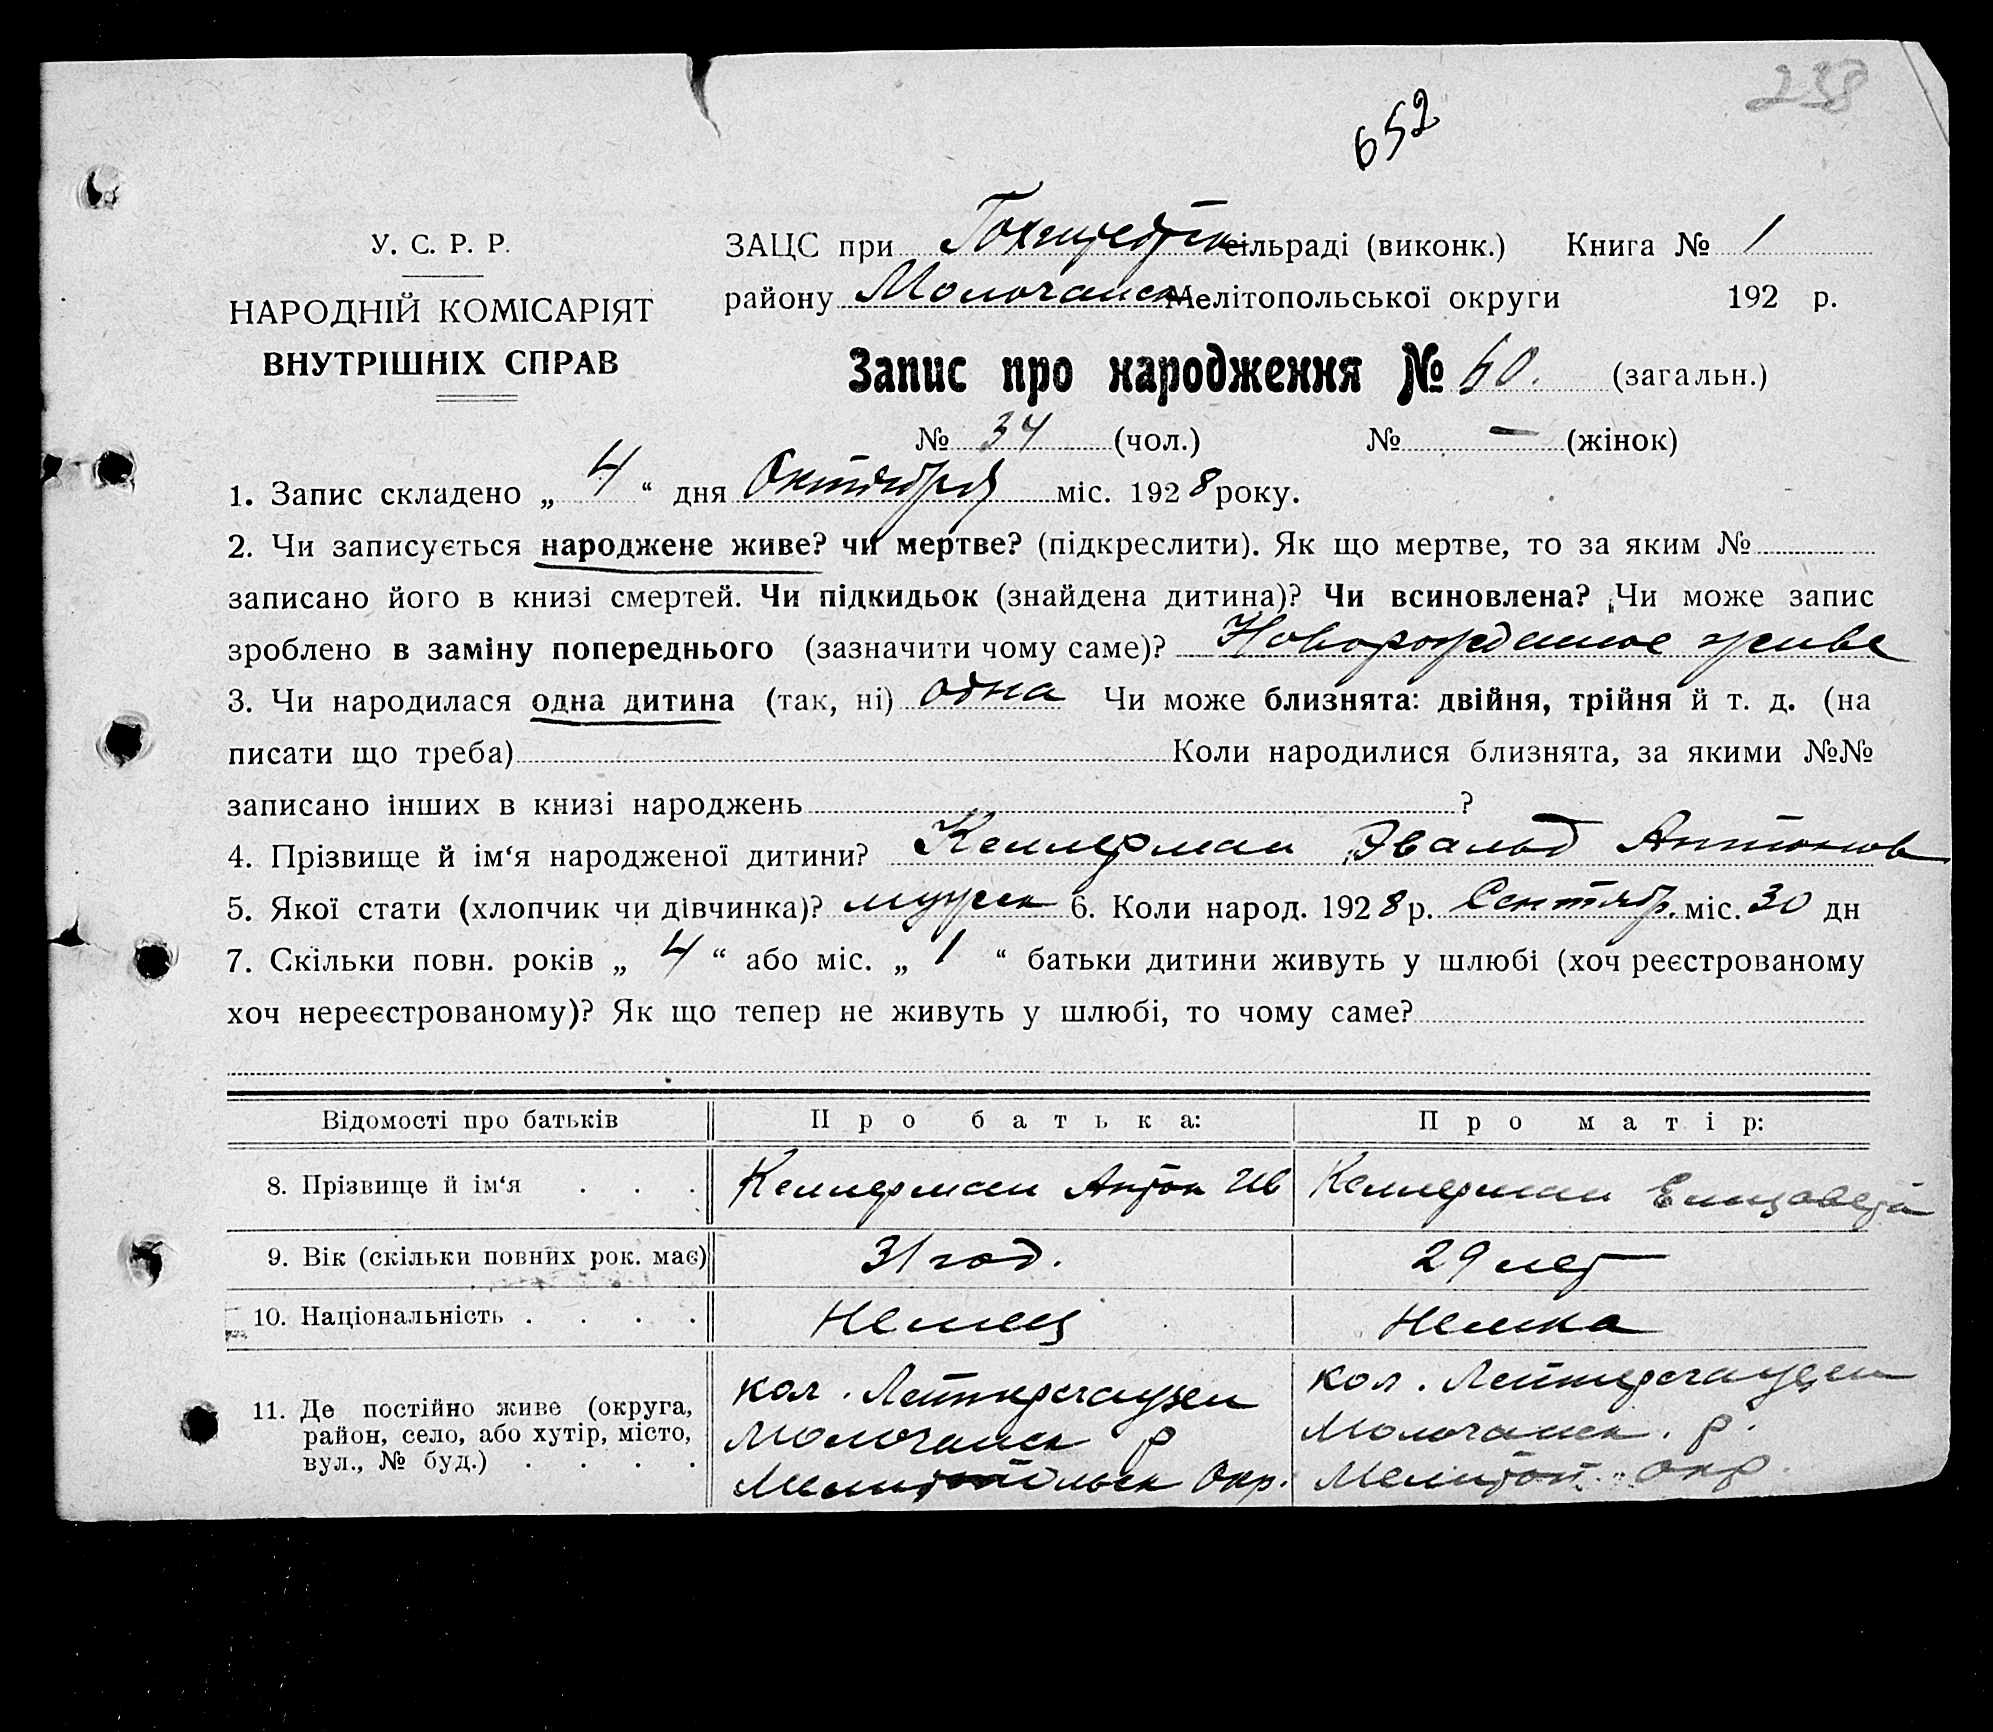 238
652
У. С. Р. Р.
НАРОДНІЙ КОМІСАРІЯТ
ВНУТРІШНІХ СПРАВ
ЗАЦС при Гохштедтск сільраді (виконк.) Книга № 1
району Молочанск Мелітопольської округи 192 р.
Запис про народження № 60. (загальн.)
№ 34 (чол.) № — (жінок)
1. Запис складено „ 4 “ дня Октября міс. 1928 року.
2. Чи записується народжене живе? чи мертве? (підкреслити). Як що мертве, то за яким №
записано його в книзі смертей. Чи підкидьок (знайдена дитина)? Чи всиновлена? Чи може запис
зроблено в заміну попереднього (зазначити чому саме)? Новорожденное живе
3. Чи народилася одна дитина (так, ні) одна Чи може близнята: двійня, трійня й т. д. (на
писати що треба) Коли народилися близнята, за якими №№
записано інших в книзі народжень ?
4. Прізвище й ім‘я народженої дитини? Келлерман Эвальд Антонов
5. Якої стати (хлопчик чи дівчинка)? мужск 6. Коли народ. 1928 р. Сентябр. міс. 30 дн
7. Скільки повн. років „ 4 “ або міс. „ 1 “ батьки дитини живуть у шлюбі (хоч реєстрованому
хоч нереєстрованому)? Як що тепер не живуть у шлюбі, то чому саме?
Відомості про батьків Про батька: Про матір:
8. Прізвище й ім‘я . . . Келлерман Антон Ив Келлерман Елизавета
9. Вік (скільки повних рок. має) 31 год. 29 лет
10. Національність . . . . Немец Немка
11. Де постійно живе (округа,
район, село, або хутір, місто,
вул., № буд.) . . . .
кол. Лейтерсгаузен
Молочанск р
Мелитопольск Окр.
кол. Лейтерсгаузен
Молочанск. р.
Мелитоп. окр.